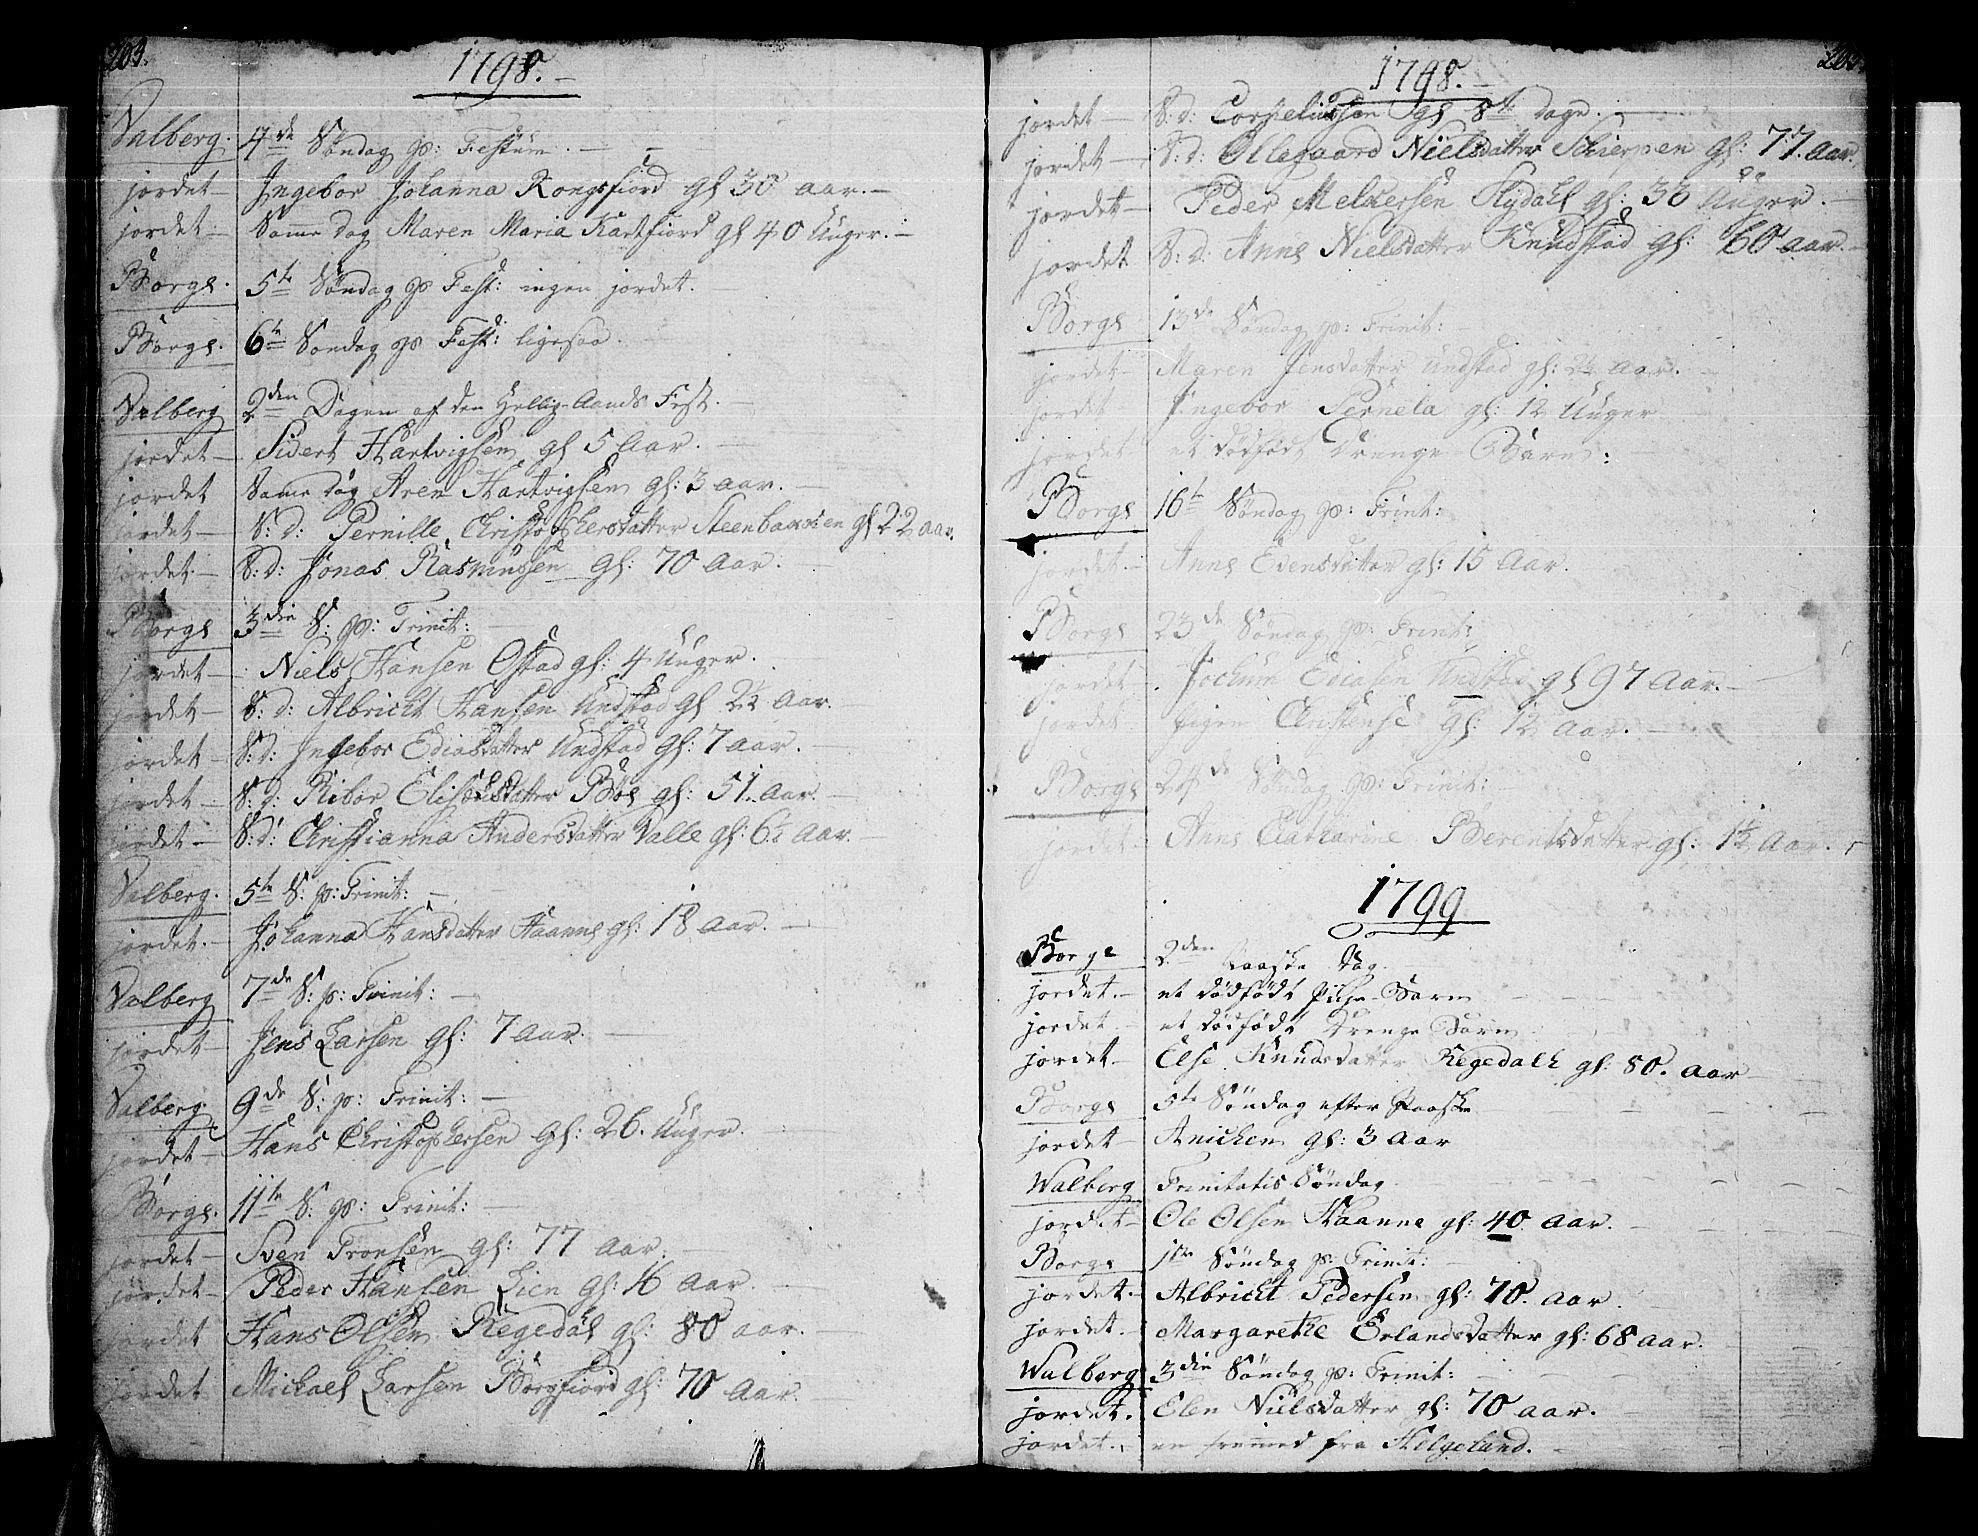 203.
1798.
Valberg. 4de Søndag p: Festum.
jordet Ingebor Johanna Kongsfiord gl 30 aar.
jordet Samme dag Maren Maria Kartfiord gl 40 Uger.
Borge. 5te Søndag p Fest: ingen jordet.
Borge. 6te Søndag p Fest: ligesaa.
Valberg 2den Dagen af den Hellig-Aands Fest.
jordet Sidert Hartvigsen gl 5 Aar.
jordet Same dag Aren Hartvigsen gl: 3 aar.
jordet S: d: Pernille Christophersdatter Steenbakken gl 22 aar.
jordet S: d: Jonas Rasmussen gl: 70 Aar.
Borge 3die S: p: Trinit:
jordet Niels Hansen Ostad gl: 4 Uger.
jordet S: d: Albricht Hansen Undstad gl 2½ Aar.
jordet S: d: Ingebor Ediasdatter Undstad gl: 7 aar.
jordet S: d: Ribor Elisædatter Bøe gl: 51. Aar.
jordet S: d: Christianna Andersdatter Valle gl: 6½ Aar.
Valberg. 5te S: p: Trinit:
jordet. Johanna Hansdatter Haanne gl: 18 aar.
Valberg 7de S: p: Trinit:
jordet Jens Larsen gl: 7 aar.
Valberg 9de S: p: Trinit:
jordet Hans Christophersen gl: 26. Uger.
Borge. 11te S: p: Trinit:
jordet Sven Tronsen gl: 77 aar.
jordet Peder Hansen Lien gl: 16 aar.
jordet Hans Olsen Regedal gl: 80 aar.
jordet Michael Larsen Borgfiord gl: 70 aar.
203.
1798.
jordet S: d: Corneliussen gl 8te dage.
jordet S: d: Ollegaard Nielsdatter Schierpen gl: 77. aar.
jordet Peder Melchersen Rydahl gl: 33 Uuger.
jordet S: d: Anne Nielsdatter Knudstad gl: 60 aar.
Borge 13de Søndag p: Trinit:
jordet Maren Jensdatter Undstad gl: 2½ aar.
jordet Ingebor Pernela gl: 12 Uuger
jordet et dødfødt Drenge-Barn:
Borge 16te Søndag p: Trinit:
jordet. Anne Edensdatter gl: 15 Aar.
Borge 23de Søndag p: Trinit:
jordet Jochum Ediasen Undstad gl 97 aar.
jordet Pigen Christense gl: 12 aar.
Borge 24de Søndag p: Trinit:
jordet Anne Catharine Berentsdatter gl: 1½ aar.
1799
Borge 2den Paaske Dag.
jordet. et dødfødt Pige-Barn
jordet. et dødfødt Drenge Barn
jordet Else Knudsdatter Regedahl gl: 80. aar
Borge 5te Søndag efter Paaske
jordet Anichen gl: 3 aar
Walberg Trinitatis Søndag
jordet Ole Olsen Haanne gl: 40 aar.
Borge 1ste Søndag p: Trinit:
jordet. Albricht Pedersen gl: 70. aar.
jordet. Margarethe Erlandsdatter gl: 68 aar.
Walberg 3die Søndag p: Trinit:
jordet. Elen Nielsdatter gl: 70 aar.
jordet. en fremmed fra Helgeland.